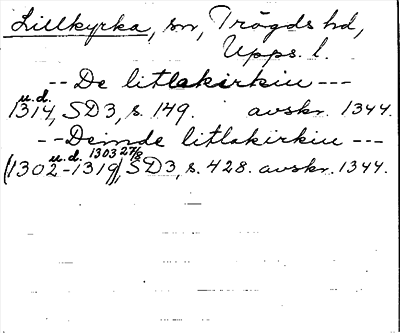 Lillkyrka, sn, Trögds hd,
Upps. l.
-- De litlakirkiu ---
u.d.
1314, SD3, s. 149. avskr. 1344.
-- Deinde litlakirkiu ---
u.d. 1303 27/8
(1302-1319), SD3, s. 428. avskr. 1344.